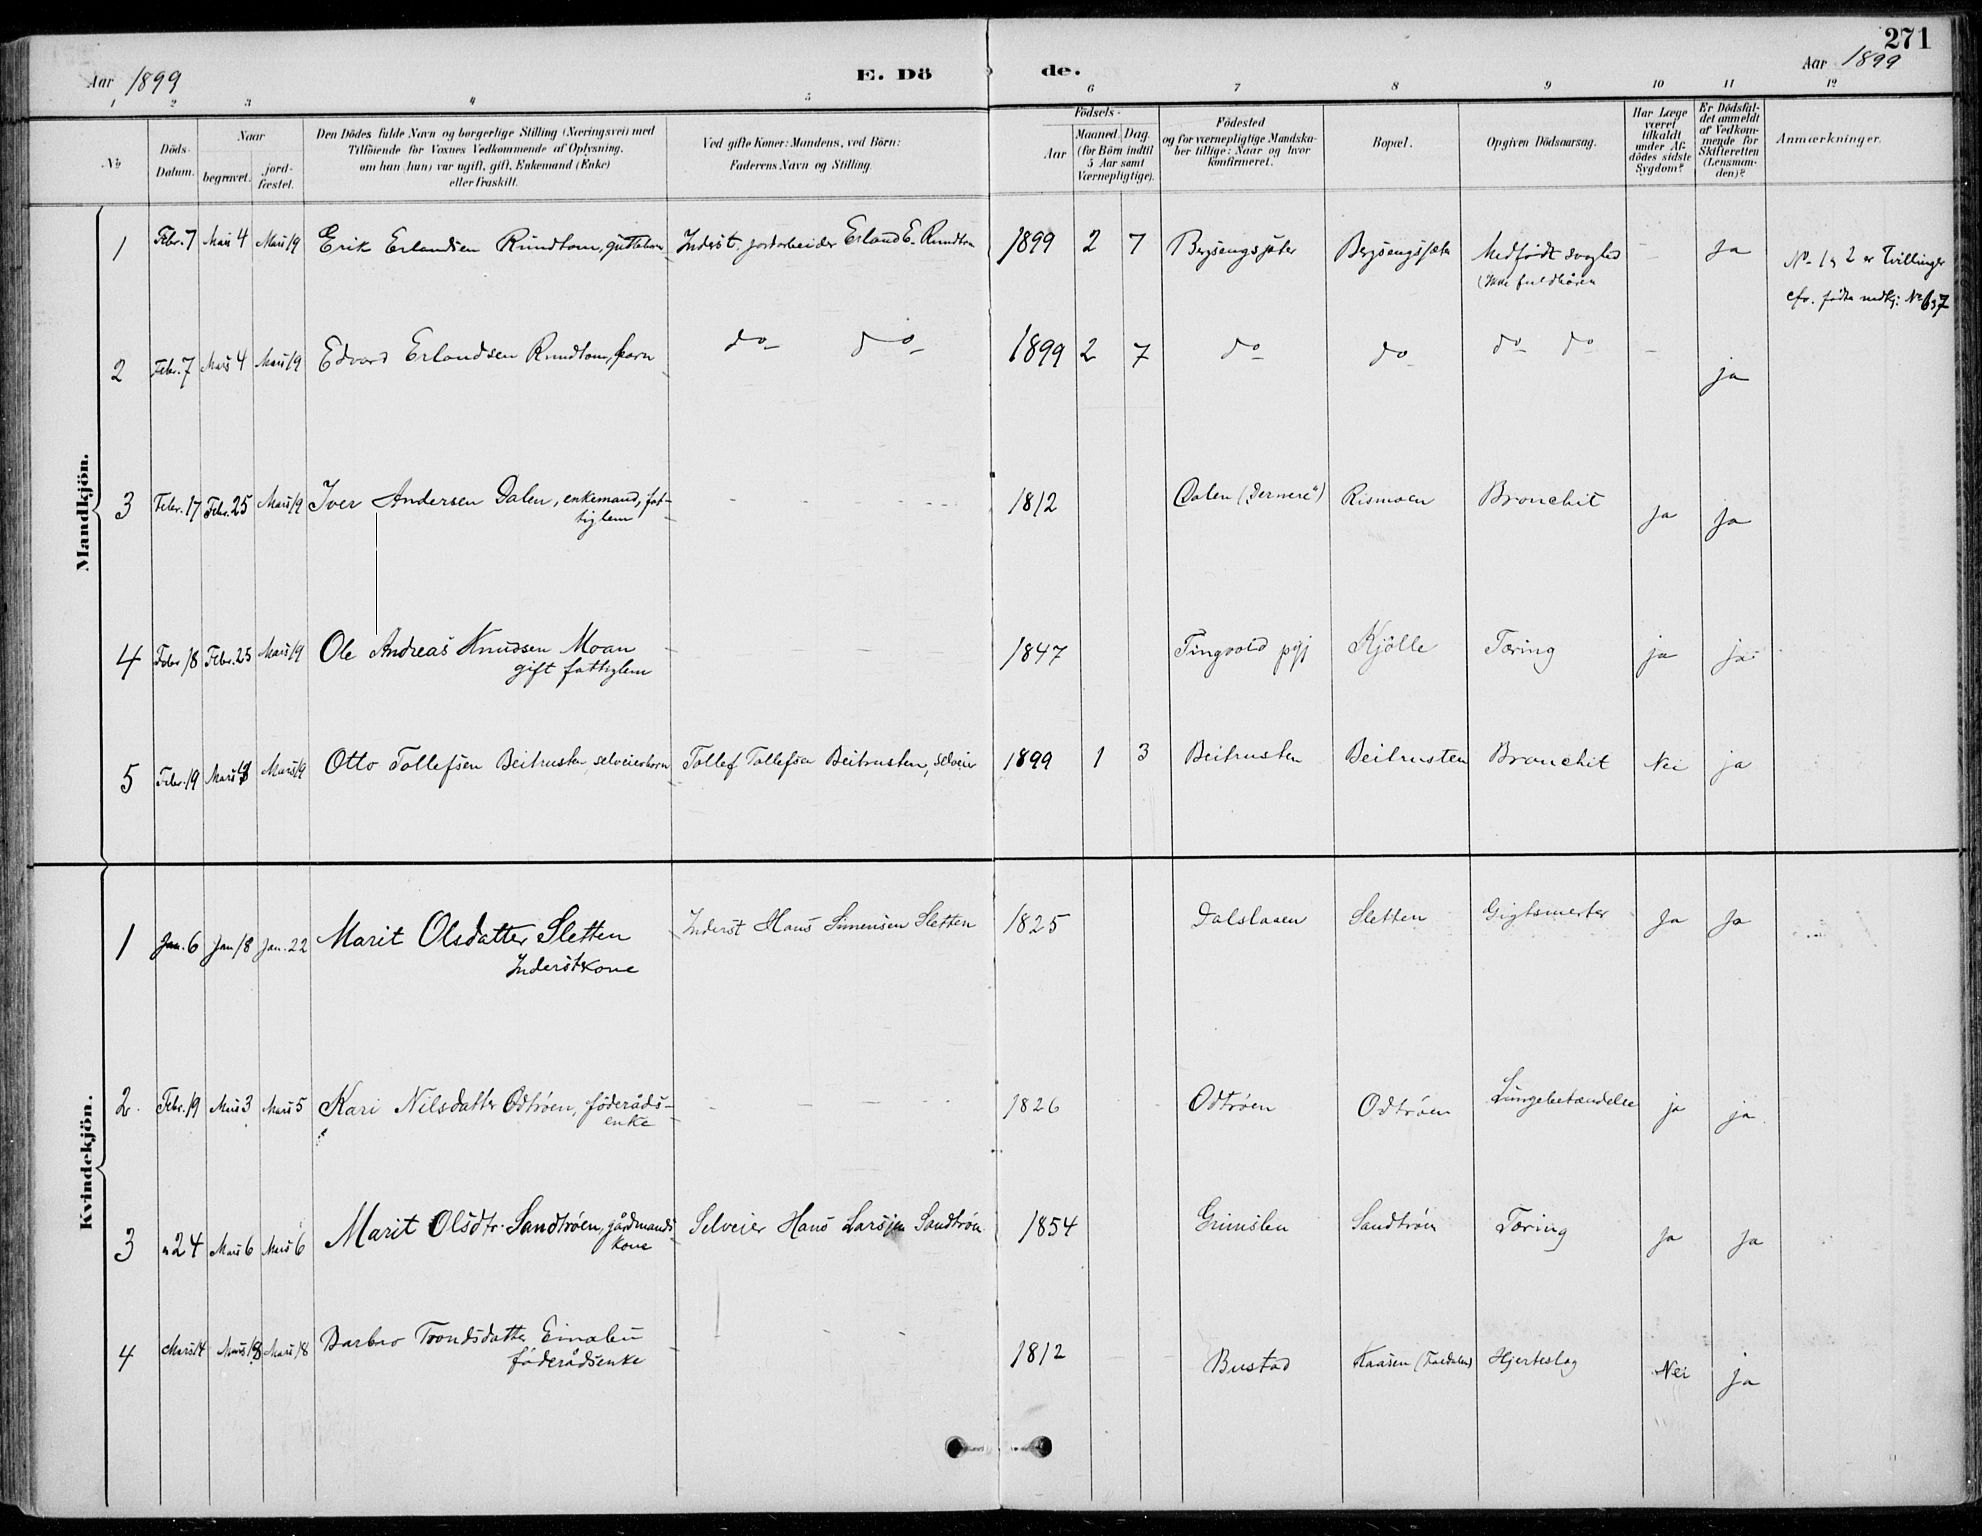 271
Aar 1899
E. Dö de.
Aar 1899
1 2 3 4 5 6 7 8 9 10 11 12
No
Döds-
Datum.
Naar
begravet.
jord-
fæstet.
Den Dödes fulde Navn og borgerlige Stilling (Næringsvei) med
Tilföiende for Voxnes Vedkommende af Oplysning,
om han (hun) var ugift, gift, Enkemand (Enke)
eller fraskilt.
Ved gifte Koner: Mandens, ved Börn:
Faderens Navn og Stilling.
Födsels-
Aar
Maaned. Dag.
(for Börn indtil
5 Aar samt
Værnepligtige).
Födested
og for værnepligtige Mandska-
ber tillige: Naar og hvor
konfirmeret.
Bopæl.
Opgiven Dödsaarsag.
Har Læge
været
tilkaldt
under Af-
dödes sidste
Sygdom?
Er Dödsfal-
det anmeldt
af Vedkom-
mende for
Skifteretten
(Lensman-
den)?
Anmærkninger.
Mandkjön.
1 Febr. 7 Mars 4 Mars 19 Erik Erlandsen Rundtom, guttebarn Inderst, jordarbeider Erland E. Rundtom 1899 2 7 Bersengsjøter Bersengsjæter Medfödt svaghed — Ja No 1 og 2 er Tvillinger
(ikke fuldbåren
cfr. födte mdkj: No 6 og 7
2 Febr. 7 Mars 4 Mars 19 Edvard Erlandsen Rundtom, barn do do 1899 2 7 do do do do — ja
3 Febr. 17 Febr. 25 Mars 19 Iver Andersen Dalen, enkemand, fat-
tiglem
- - - - - 1812 Dalen („Dernere") Rismoen Bronchit Ja Ja
4 Febr 18 Febr. 25 Mars 19 Ole Andreas Knudsen Moan
gift fattiglem
1847 Tingvold pgj Kjölle Tæring ja ja
5 Febr. 19 Mars Mars 19 Otto Tollefsen Beitrusten, selveierbarn Tollef Tollefsen Beitrusten, selveier 1899 1 3 Beitrusten Beitrusten Bronchit Nei ja
Kvindekjön.
1 Jan. 6 Jan 18 Jan. 22 Marit Olsdatter Sletten
Inderstkone
Inderst Hans Simensen Sletten 1825 Dalslaaen Sletten Gigtsmerter Ja Ja
2. Febr. 19 Mars 3 Mars 5 Kari Nilsdatter Odtröen, föderåds-
enke
- - - - 1826 Odtröen Odtröen Lungebetændelse ja ja
3 " 24 Mars 6 Mars 6 Marit Olsdtr. Sandtröen, gårdmands
kone
Selveier Hans Larsen Sandtröen 1854 Grimslen Sandtröen Tæring Ja Ja
4 Mars 14 Mars 18 Mars 18 Barbro Trondsdatter Einabu
föderådsenke
- - - 1812 Bustad Kaasen (Faldalen) Hjerteslag Nei ja